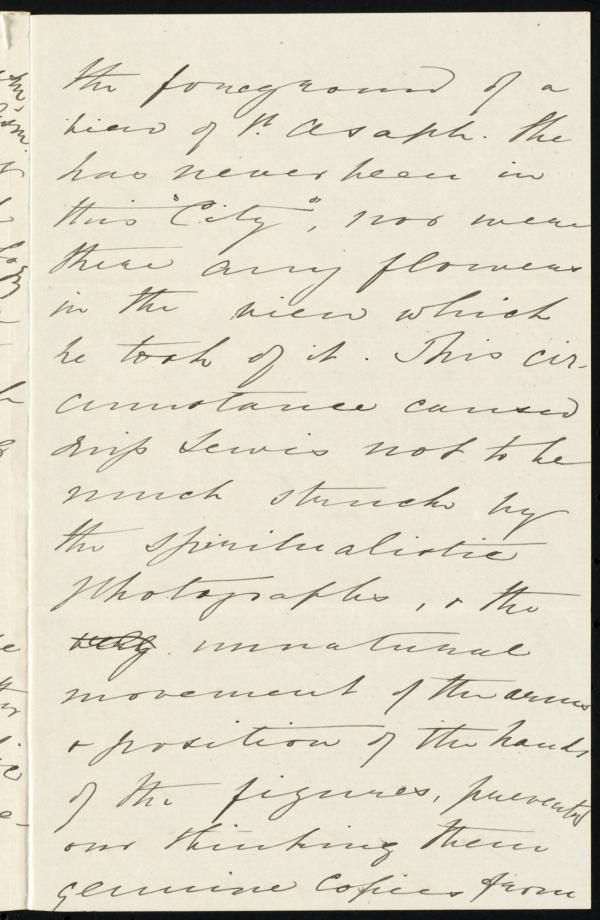 the foreground of a
view of St. Asaph. She
has never been in
this "City", nor were
there any flowers
in the view which
he took of it. This cir-
cumstance caused
Miss Lewis not to be
much struck by
the spiritualistic
photographs, & the
very unnatural
movement of the arms
& position of the hands
of the figures, prevented
our thinking them
genuine copies from